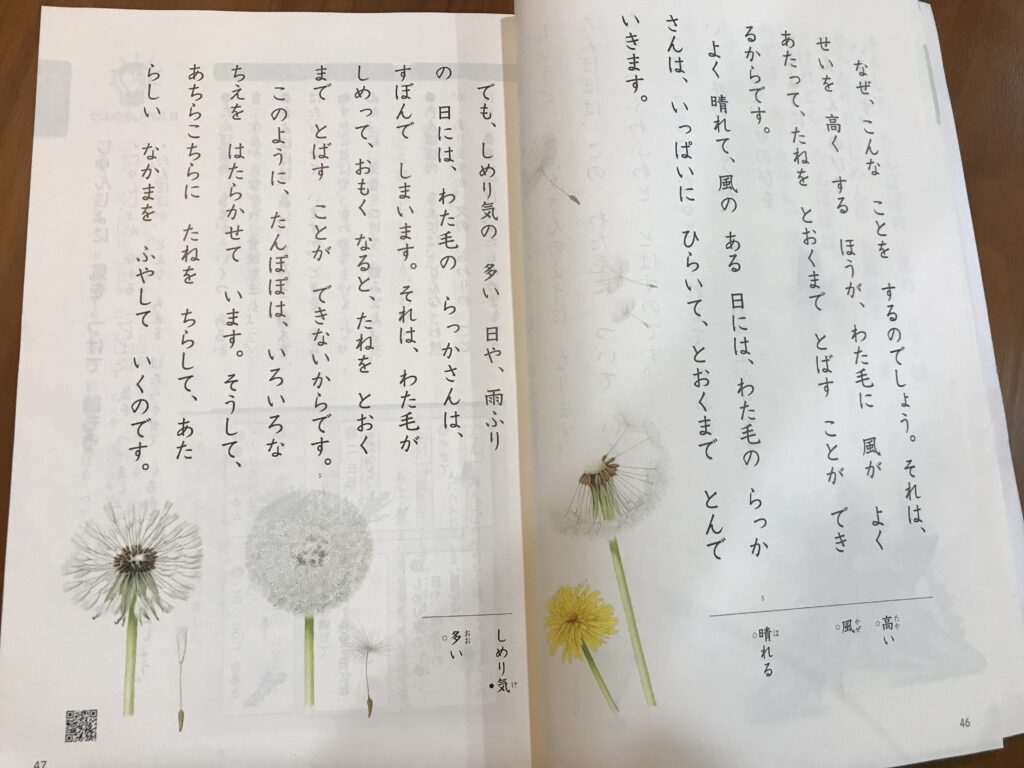 なぜ、こんな　ことを　するのでしょう。それは、
せいを　高く　する　ほうが、わた毛に　風が　よく
あたって、たねを　とおくまで　とばす　ことが　でき
るからです。
よく　晴れて、風の　ある　日には、わた毛の　らっか
さんは、いっぱいに　ひらいて、とおくまで　とんで
いきます。
5
高い
たか
風
かぜ
晴れる
は
46
でも、しめり気の　多い　日や、雨ふり
の　日には、わた毛の　らっかさんは、
すぼんで　しまいます。それは、わた毛が
しめって、おもく　なると、たねを　とおく
まで　とばす　ことが　できないからです。
このように、たんぽぽは、いろいろな
ちえを　はたらかせて　います。そうして、
あちらこちらに　たねを　ちらして、あた
らしい　なかまを　ふやして　いくのです。
5
しめり気
け
多い
おお
47